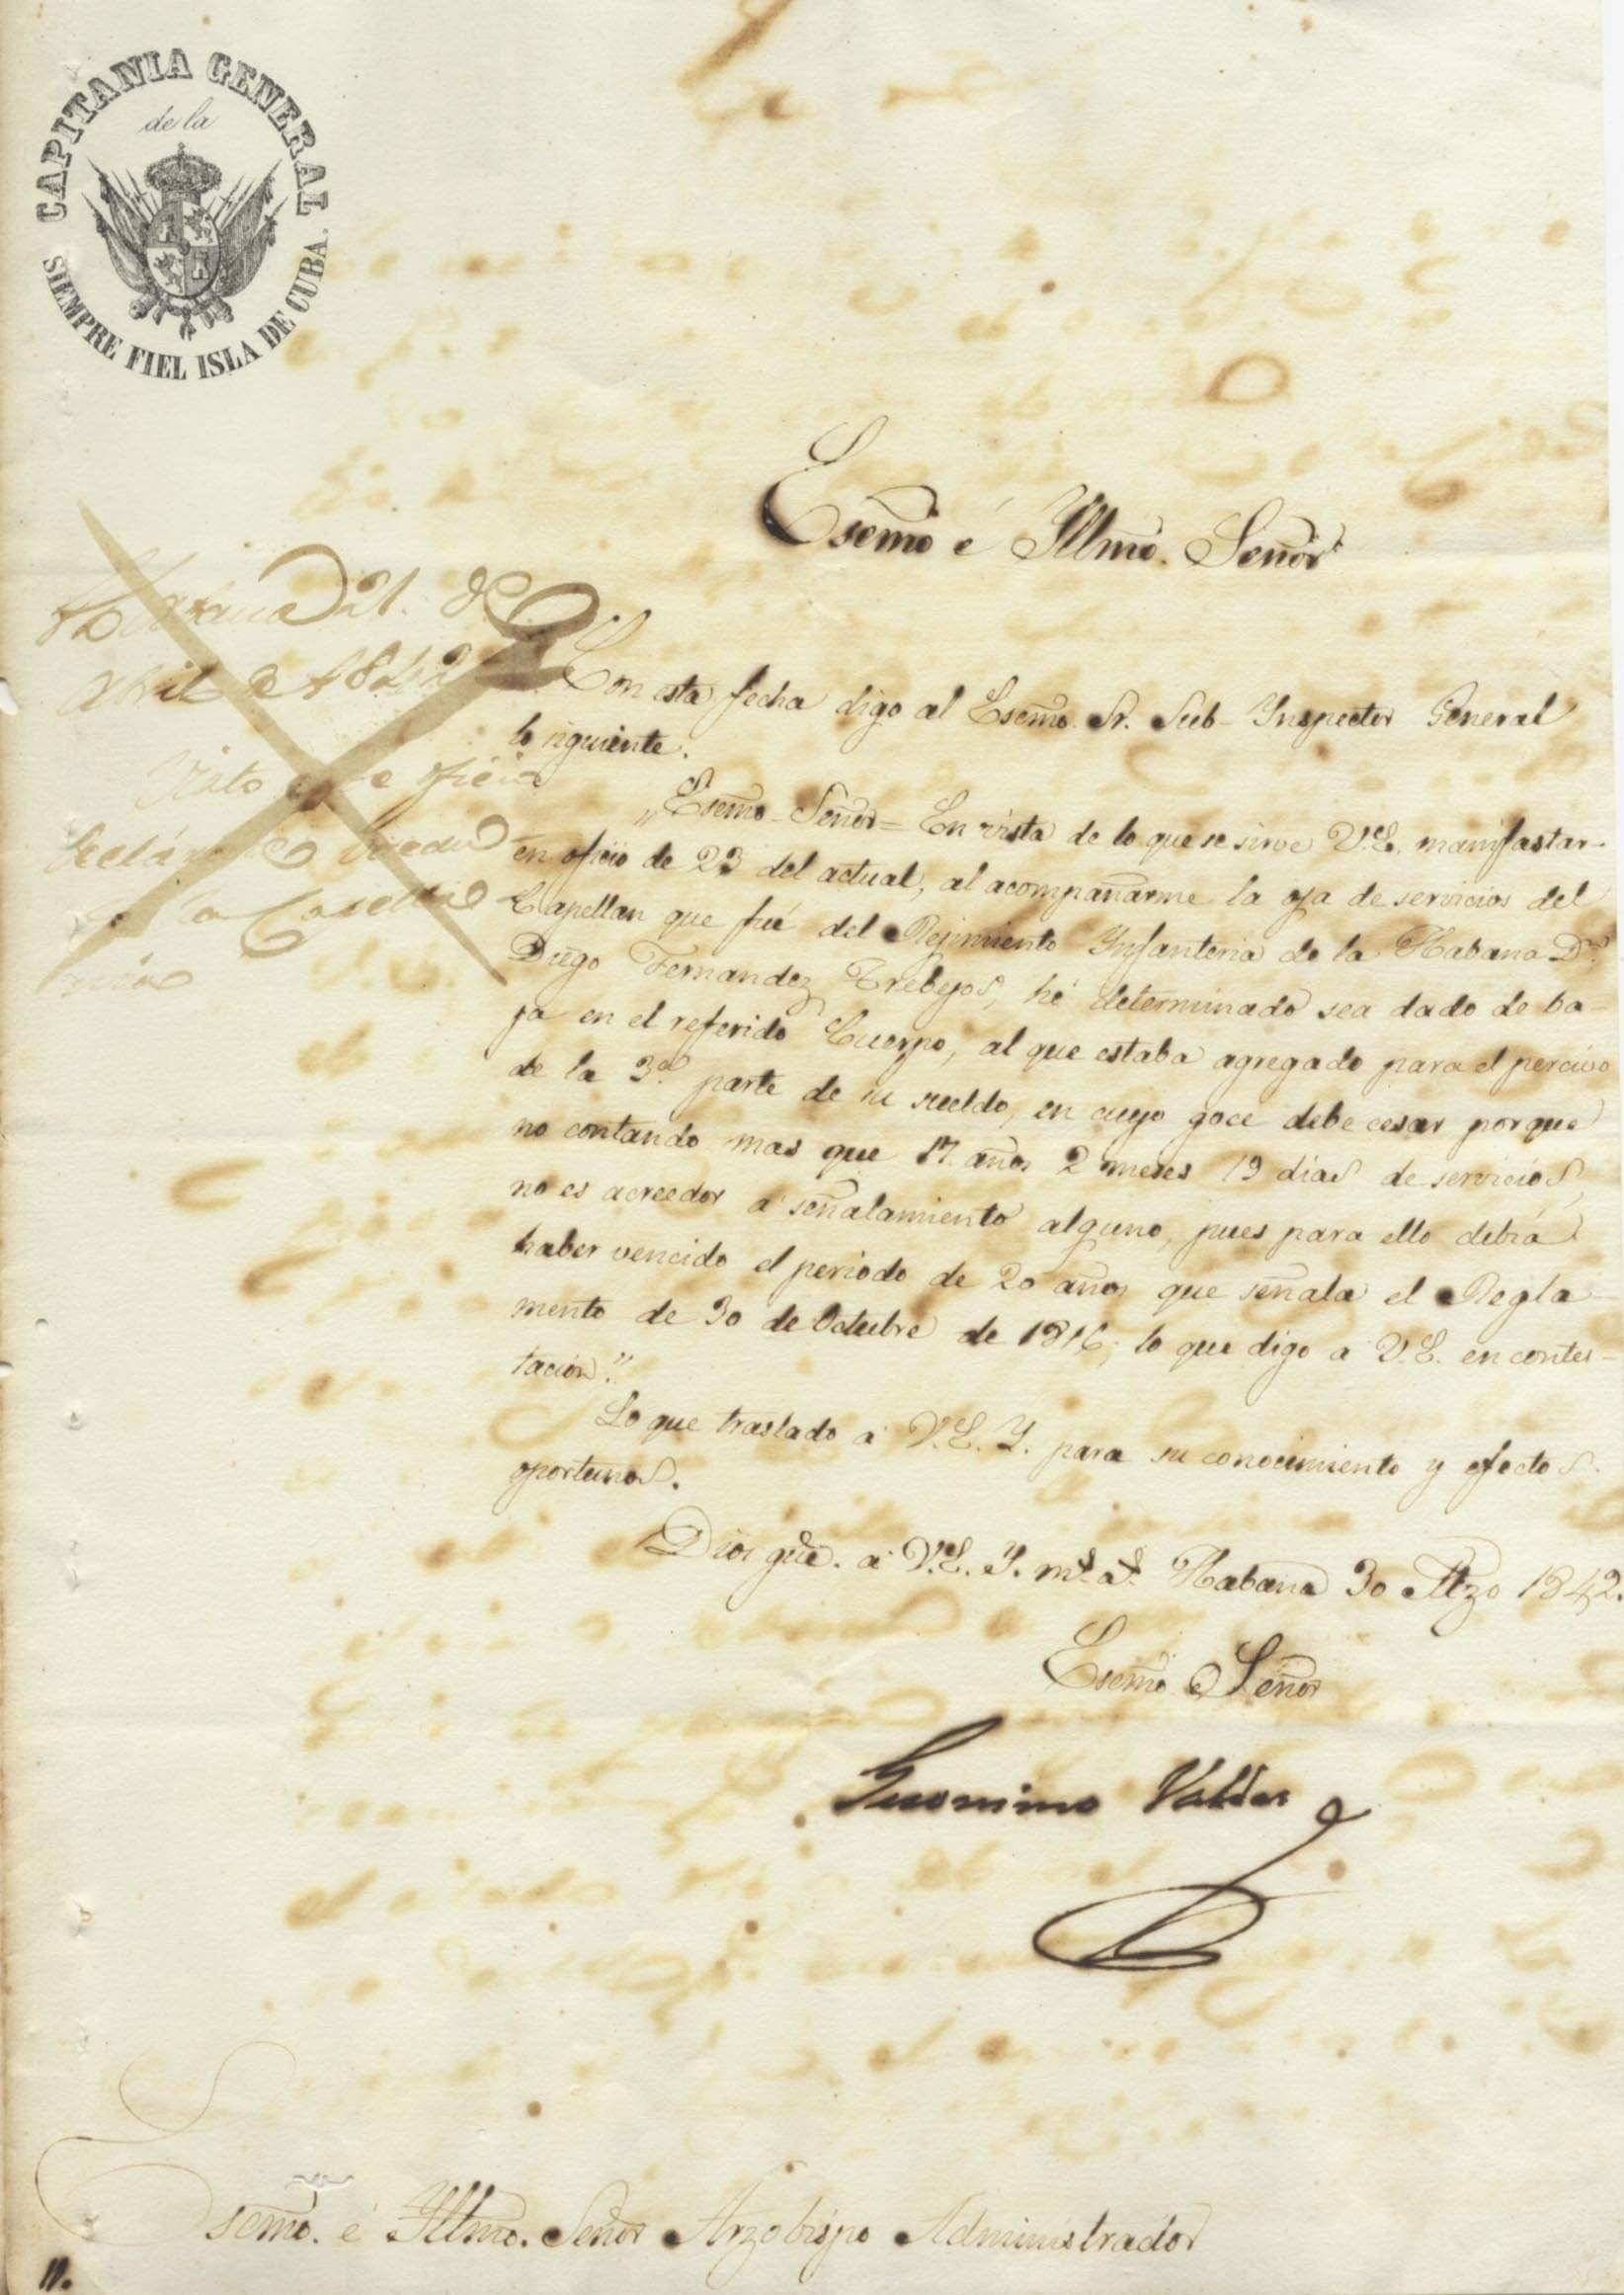 CAPITANIA GENERAL
de la
SIEMPRE FIEL ISLA DE CUBA.
Escmo é Yllmo. Señor
Habana 21. de
Abril de 1842
Visto este oficio
Con esta fecha digo al Escmo. Sr. Sub-Ynspector General
lo siguiente.
"Escmo. Señor = En vista de lo que se sirve V.E. manifastar-
en oficio de 23 del actual, al acompañarme la oja de servicios del
Capellan que fué del Rejimiento Ynfanteria de la Habana Dn.
Diego Fernandez Trebejos, hé determinado sea dado de ba-
ja en el referido Cuerpo, al que estaba agregado para el percivo
de la 3a. parte de su sueldo, en cuyo goce debe cesar porque
no contando mas que 17. años 2 meses 19 dias de servicios,
no es acreedor a señalamiento alguno, pues para ello debiá
haber vencido el periodo de 20 años que señala el Regla-
mento de 30 de Octubre de 1816; lo que digo a V.E. en contes-
tación".
Lo que traslado a V.E.Y. para su conocimiento y efectos
oportunos.
Dios gũe. a V.E.Y. ms. as. Habana 30 Mzo 1842.
Escmo. Señor
Geronimo Valdes
Escmo. é Yltmo. Señor Arzobispo Administrador